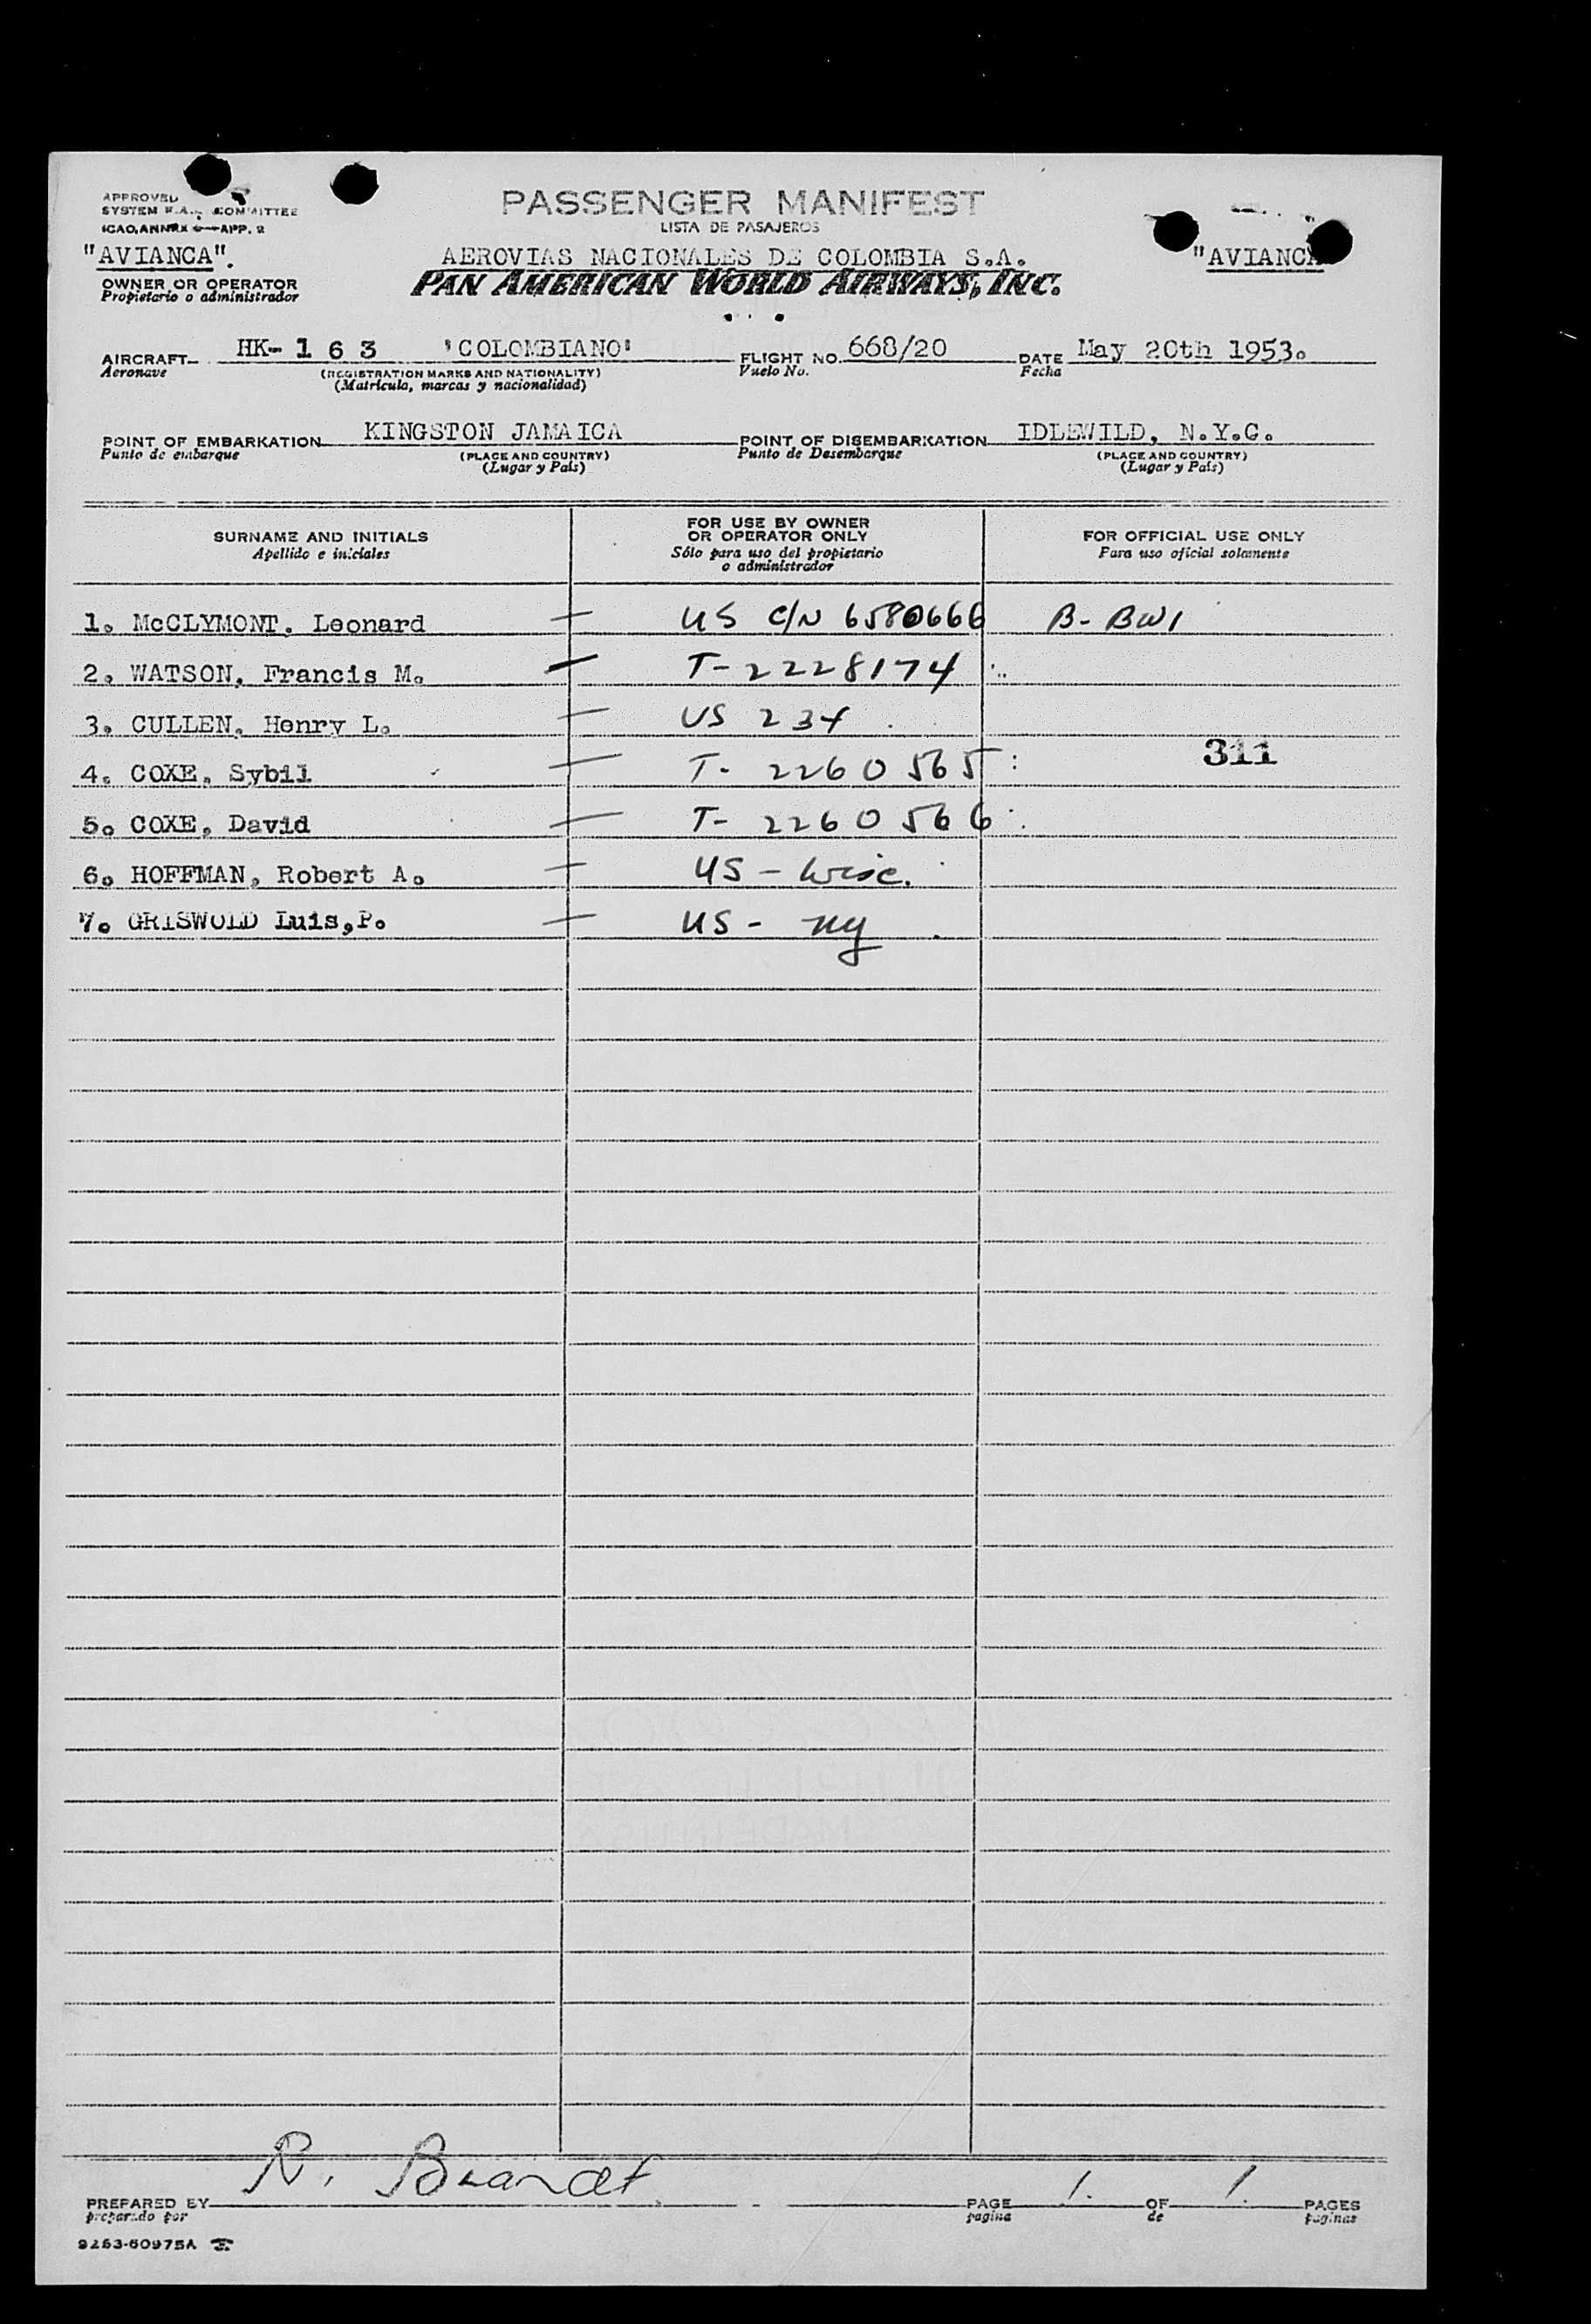 APPROVED
SYSTEM COMMITTEE
ICAO, ANNEX APP. 2
PASSENGER MANIFEST
LISTA DE PASAJEROS
"AVIANCA".
AEROVIAS NACIONALES DE COLOMBIA S.A.
"AVIANCA
OWNER OR OPERATOR
Propietario o administrador
PAN AMERICAN WORLD AIRWAYS, INC.
AIRCRAFT HK-163 "COLOMBIANO" FLIGHT NO. 668/20 DATE May 20th 1953.
Aeronave (REGISTRATION MARKS AND NATIONALITY) Vuelo No. Fecha
(Matrícula, marcas y nacionalidad)
POINT OF EMBARKATION KINGSTON JAMAICA POINT OF DISEMBARKATION IDLEWILD, N.Y.C.
Punto de embarque (PLACE AND COUNTRY) Punto de Desembarque (PLACE AND COUNTRY)
(Lugar y País) (Lugar y País)
SURNAME AND INITIALS
Apellido e iniciales
FOR USE BY OWNER
OR OPERATOR ONLY
Sólo para uso del propietario
o administrador
FOR OFFICIAL USE ONLY
Para uso oficial solamente
1. McCLYMONT. Leonard — US C/N 6580666 B- BWI
2. WATSON, Francis M. — T-2228174
3. CULLEN, Henry L. — US 234
311
4. COXE, Sybil — T- 2260565
5. COXE, David — T- 2260566
6. HOFFMAN, Robert A. — US - Wisc.
7. GRISWOLD Luis,P. — US - NY
PREPARED BY R. Brandt PAGE 1. OF 1. PAGES
preparado por pagina de paginas
9263-60975A